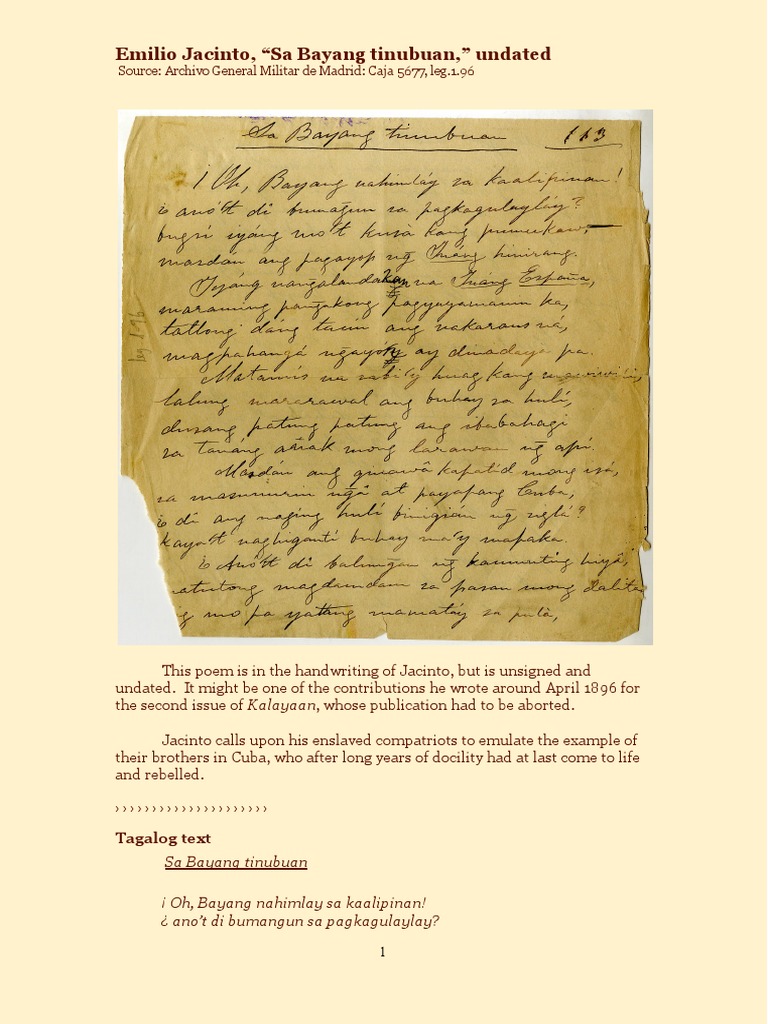 Emilio Jacinto, “Sa Bayang tinubuan,” undated
Source: Archivo General Militar de Madrid: Caja 5677, leg.1.96
Sa Bayang tinubuan 113
¡ Oh, Bayang nahimláy sa kaalipinan!
¿ anó't di bumagun sa pagkagulayláy?
bugsi iyáng mo't kusà kang pumukaw,
masdan ang pagayop ng Ináng hinirang.
Iyáng nangalandakan na Ináng España,
maraming pangakong pagyayamanin ka,
tatlong dáng taún ang nakaraus ná,
magpahangá ngayó'y ay dinadaya pa.
leg 1.96
Matamis na sabi'y huag kang
lalung mararawal ang buhay sa hulí,
dusang patung patung ang ibabahagi
sa tanáng anak mong larawan ng apí.
Masdán ang giniawâ kapatid mong isá,
sa masunurin ngâ at payapang Cuba,
¿ di ang naging hulí binigián ng
kaya't naghigantí buhay ma'y mapaka.
¿ Anó't di balingan ng kaunting hiyâ,
magdamdam sa pasan mong dalita
mo pa yatang mamatáy sa pulà,
This poem is in the handwriting of Jacinto, but is unsigned and
undated. It might be one of the contributions he wrote around April 1896 for
the second issue of Kalayaan, whose publication had to be aborted.
Jacinto calls upon his enslaved compatriots to emulate the example of
their brothers in Cuba, who after long years of docility had at last come to life
and rebelled.
› › › › › › › › › › › › › › › › › › › › ›
Tagalog text
Sa Bayang tinubuan
¡ Oh, Bayang nahimlay sa kaalipinan!
¿ ano’t di bumangun sa pagkagulaylay?
1